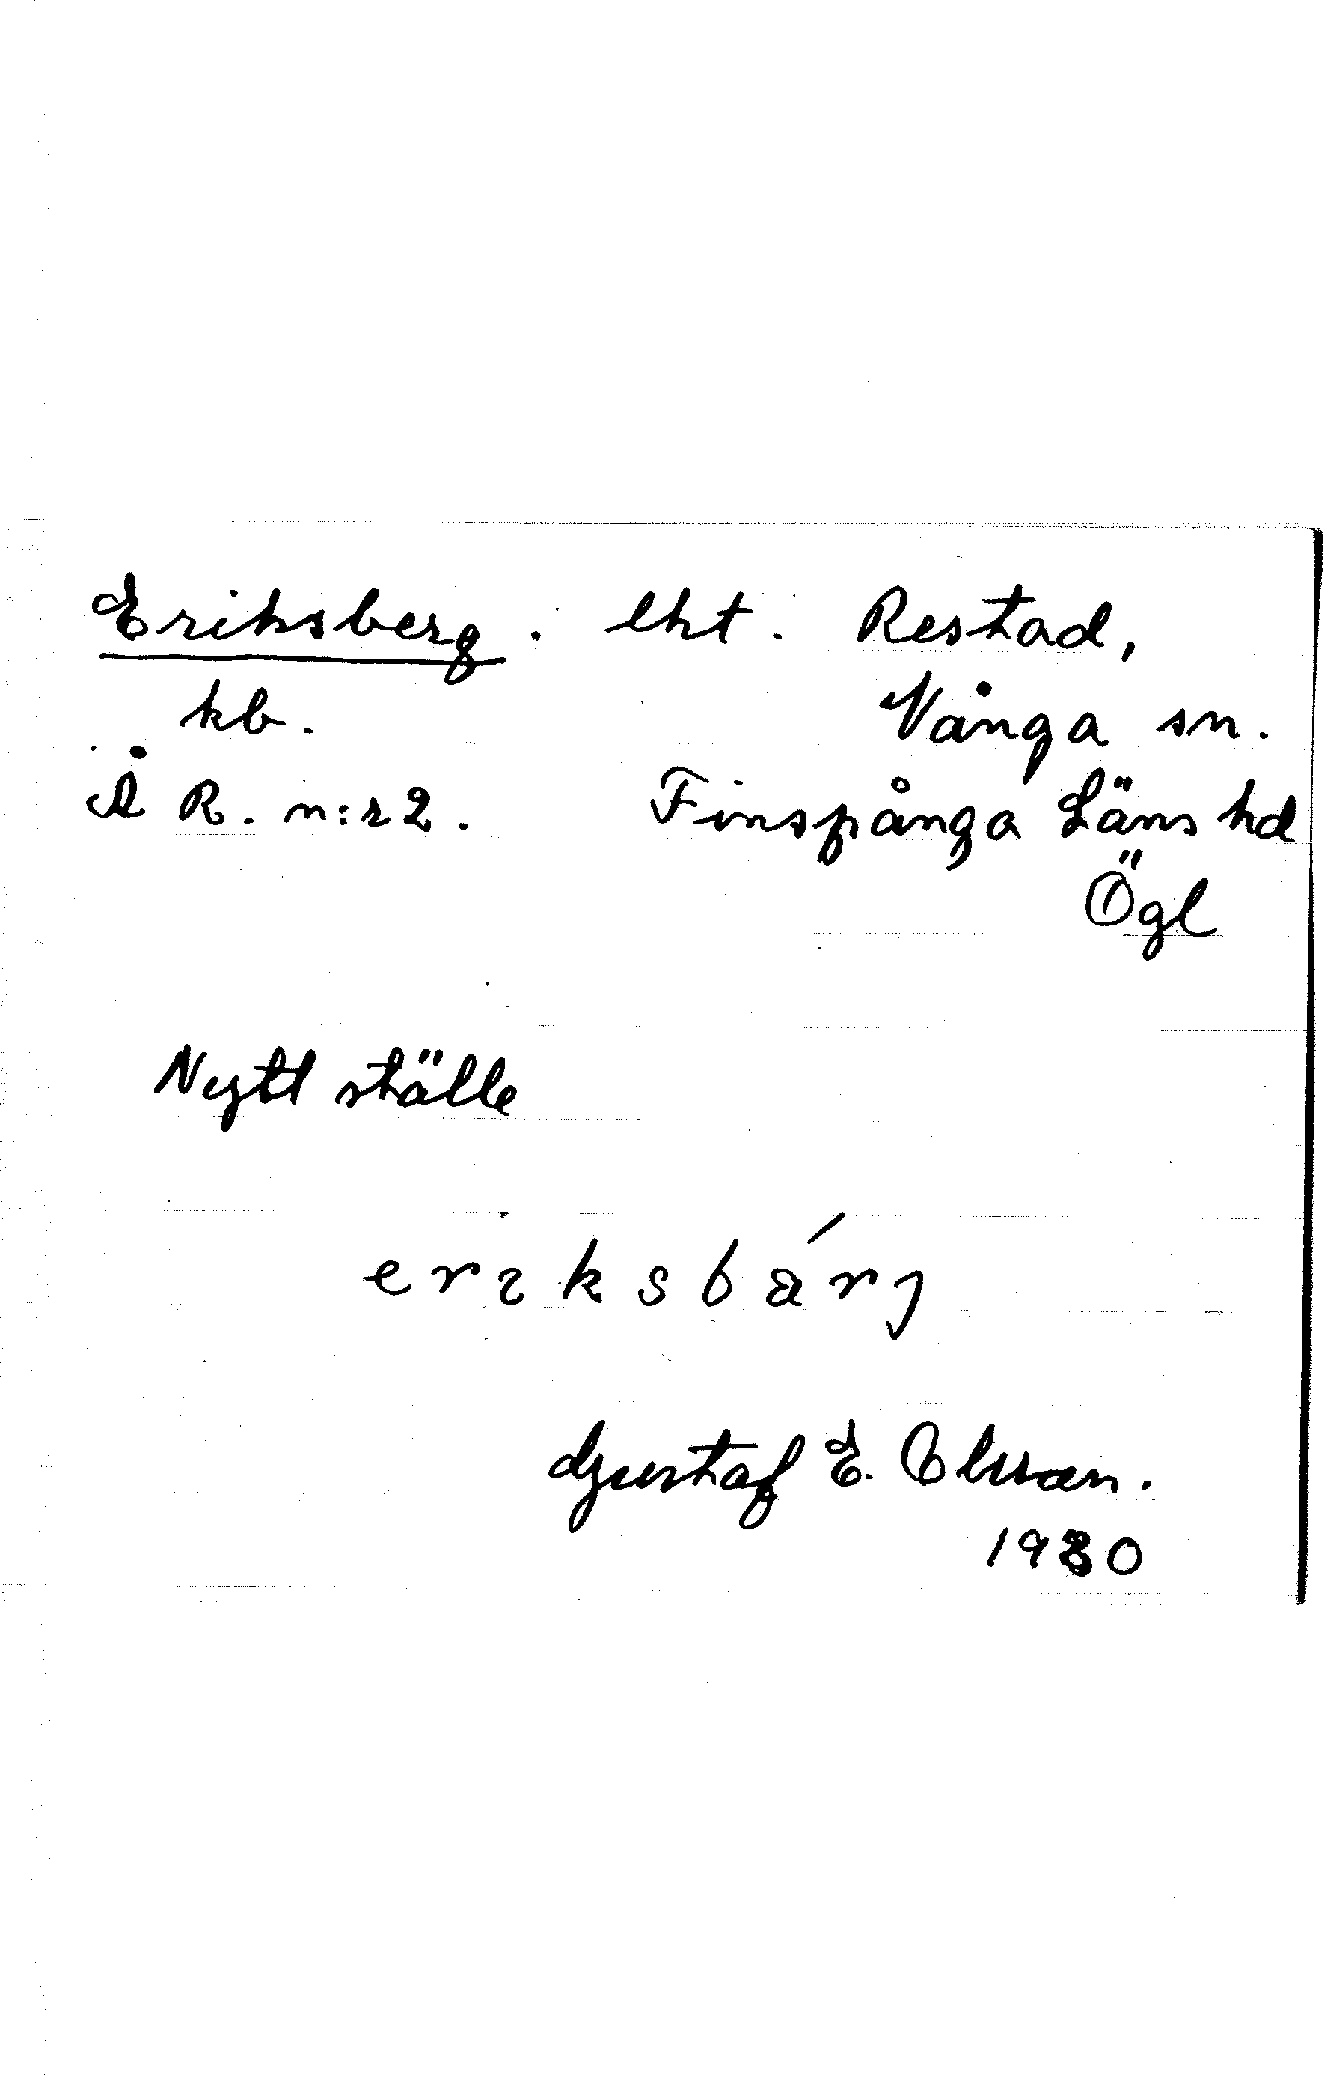 Eriksberg. lht. Restad,
kb. Vånga sn.
Å R. n:r 2. Finspånga Läns hd
Ögl
Nytt ställe
eriksbárj
Gustaf E. Olsson.
1930